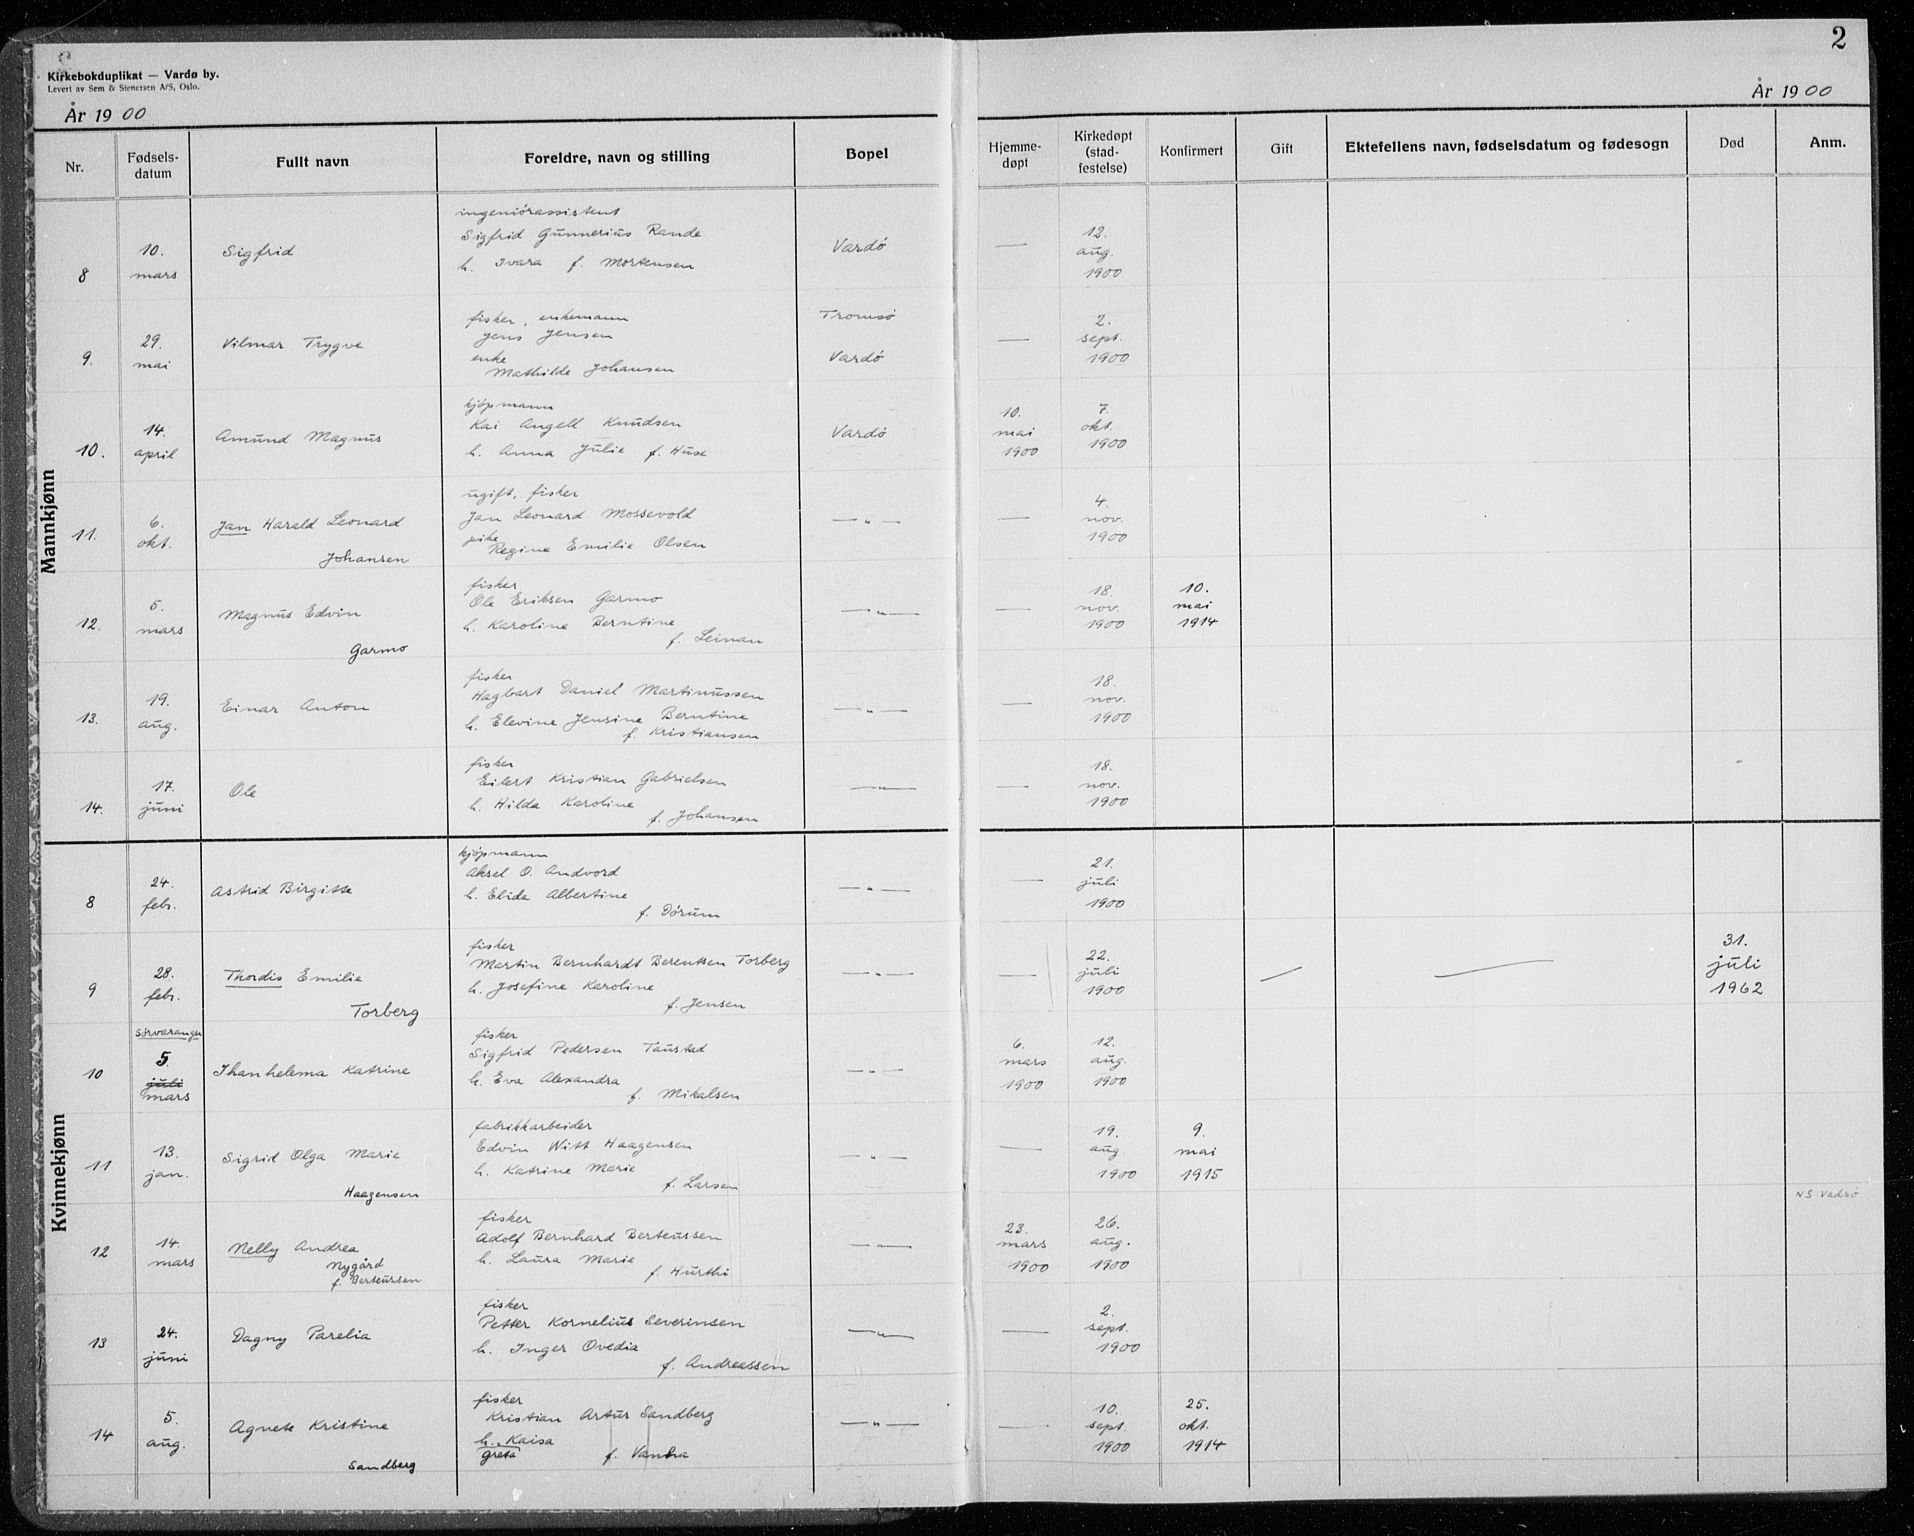 2
Kirkebokduplikat — Vardø by.
Levert av Sem & Stenersen A/S, Oslo.
År 1900
År 1900
Nr.
Fødsels-
datum
Fullt navn
Foreldre, navn og stilling
Bopel
Hjemme-
døpt
Kirkedøpt
(stad-
festelse)
Konfirmert
Gift
Ektefellens navn, fødselsdatum og fødesogn
Død
Anm.
Mannkjønn
8
10.
mars
Sigfrid
ingeniørassistent
Sigfrid Gunnerius Rande
h. Ivara f. Mortensen
Vardø
—
12.
aug.
1900
9.
29.
mai
Vilmar Trygve
fisker, enkemann
Jens Jensen
enke
Mathilde Johansen
Tromsø
Vardø
—
2.
sept.
1900
10.
14.
april
Amund Magnus
kjøpmann
Kai Angell Knudsen
h. Anna Julie f. Huse
Vardø
10.
mai
1900
7.
okt.
1900
11.
6.
okt.
Jan Harald Leonard
Johansen
ugift, fisker
Jan Leonard Mossevold
pike
Regine Emilie Olsen
— " —
—
4.
nov.
1900
12.
5.
mars
Magnus Edvin
Garmo
fisker
Ole Eriksen Garmo
h. Karoline Berntine
f. Leinan
— " —
—
18.
nov.
1900
10.
mai
1914
13.
19.
aug.
Einar Anton
fisker
Hagbart Daniel Martinussen
h. Elevine Jensine Berntine
f. Kristiansen
— " —
—
18.
nov.
1900
14.
17.
juni
Ole
fisker
Eilert Kristian Gabrielsen
h. Hilda Karoline
f. Johansen
— " —
—
18.
nov.
1900
Kvinnekjønn
8
24.
febr.
Astrid Birgitte
kjøpmann
Aksel O. Andvord
h. Elida Albertine
f. Dørum
— " —
—
21.
juli
1900
9
28.
febr.
Thordis Emilie
Torberg
fisker
Martin Bernhardt Berentsen Torberg
h. Josefine Karoline
f. Jensen
— " —
—
22.
juli
1900
—
—
31.
juli
1962
10
Sørvaranger
5.
juli
mars
Jhanhelema Katrine
fisker
Sigfrid Pedersen Taustad
h. Eva Alexandra
f. Mikalsen
— " —
6.
mars
1900
12.
aug.
1900
11
13.
jan.
Sigrid Olga Marie
Haagensen
fabrikkarbeider
Edvin Witt Haagensen
h. Katrine Marie
f. Larsen
— " —
—
19.
aug.
1900
9.
mai
1915
12
14.
mars
Nelly Andrea
Nygård
f. Berteussen
fisker
Adolf Bernhard Berteussen
h. Laura Marie
f. Hurthi
— " —
23.
mars
1900
26.
aug.
1900
NS Vadsø
13
24.
juni
Dagny Parelia
fisker
Petter Kornelius Severinsen
h. Inger Ovedia
f. Andreassen
— " —
—
2.
sept.
1900
14
5.
aug.
Agnete Kristine
Sandberg
fisker
Kristian Artur Sandberg
h. Kaisa
greta
f.
— " —
—
10.
sept.
1900
25.
okt.
1914